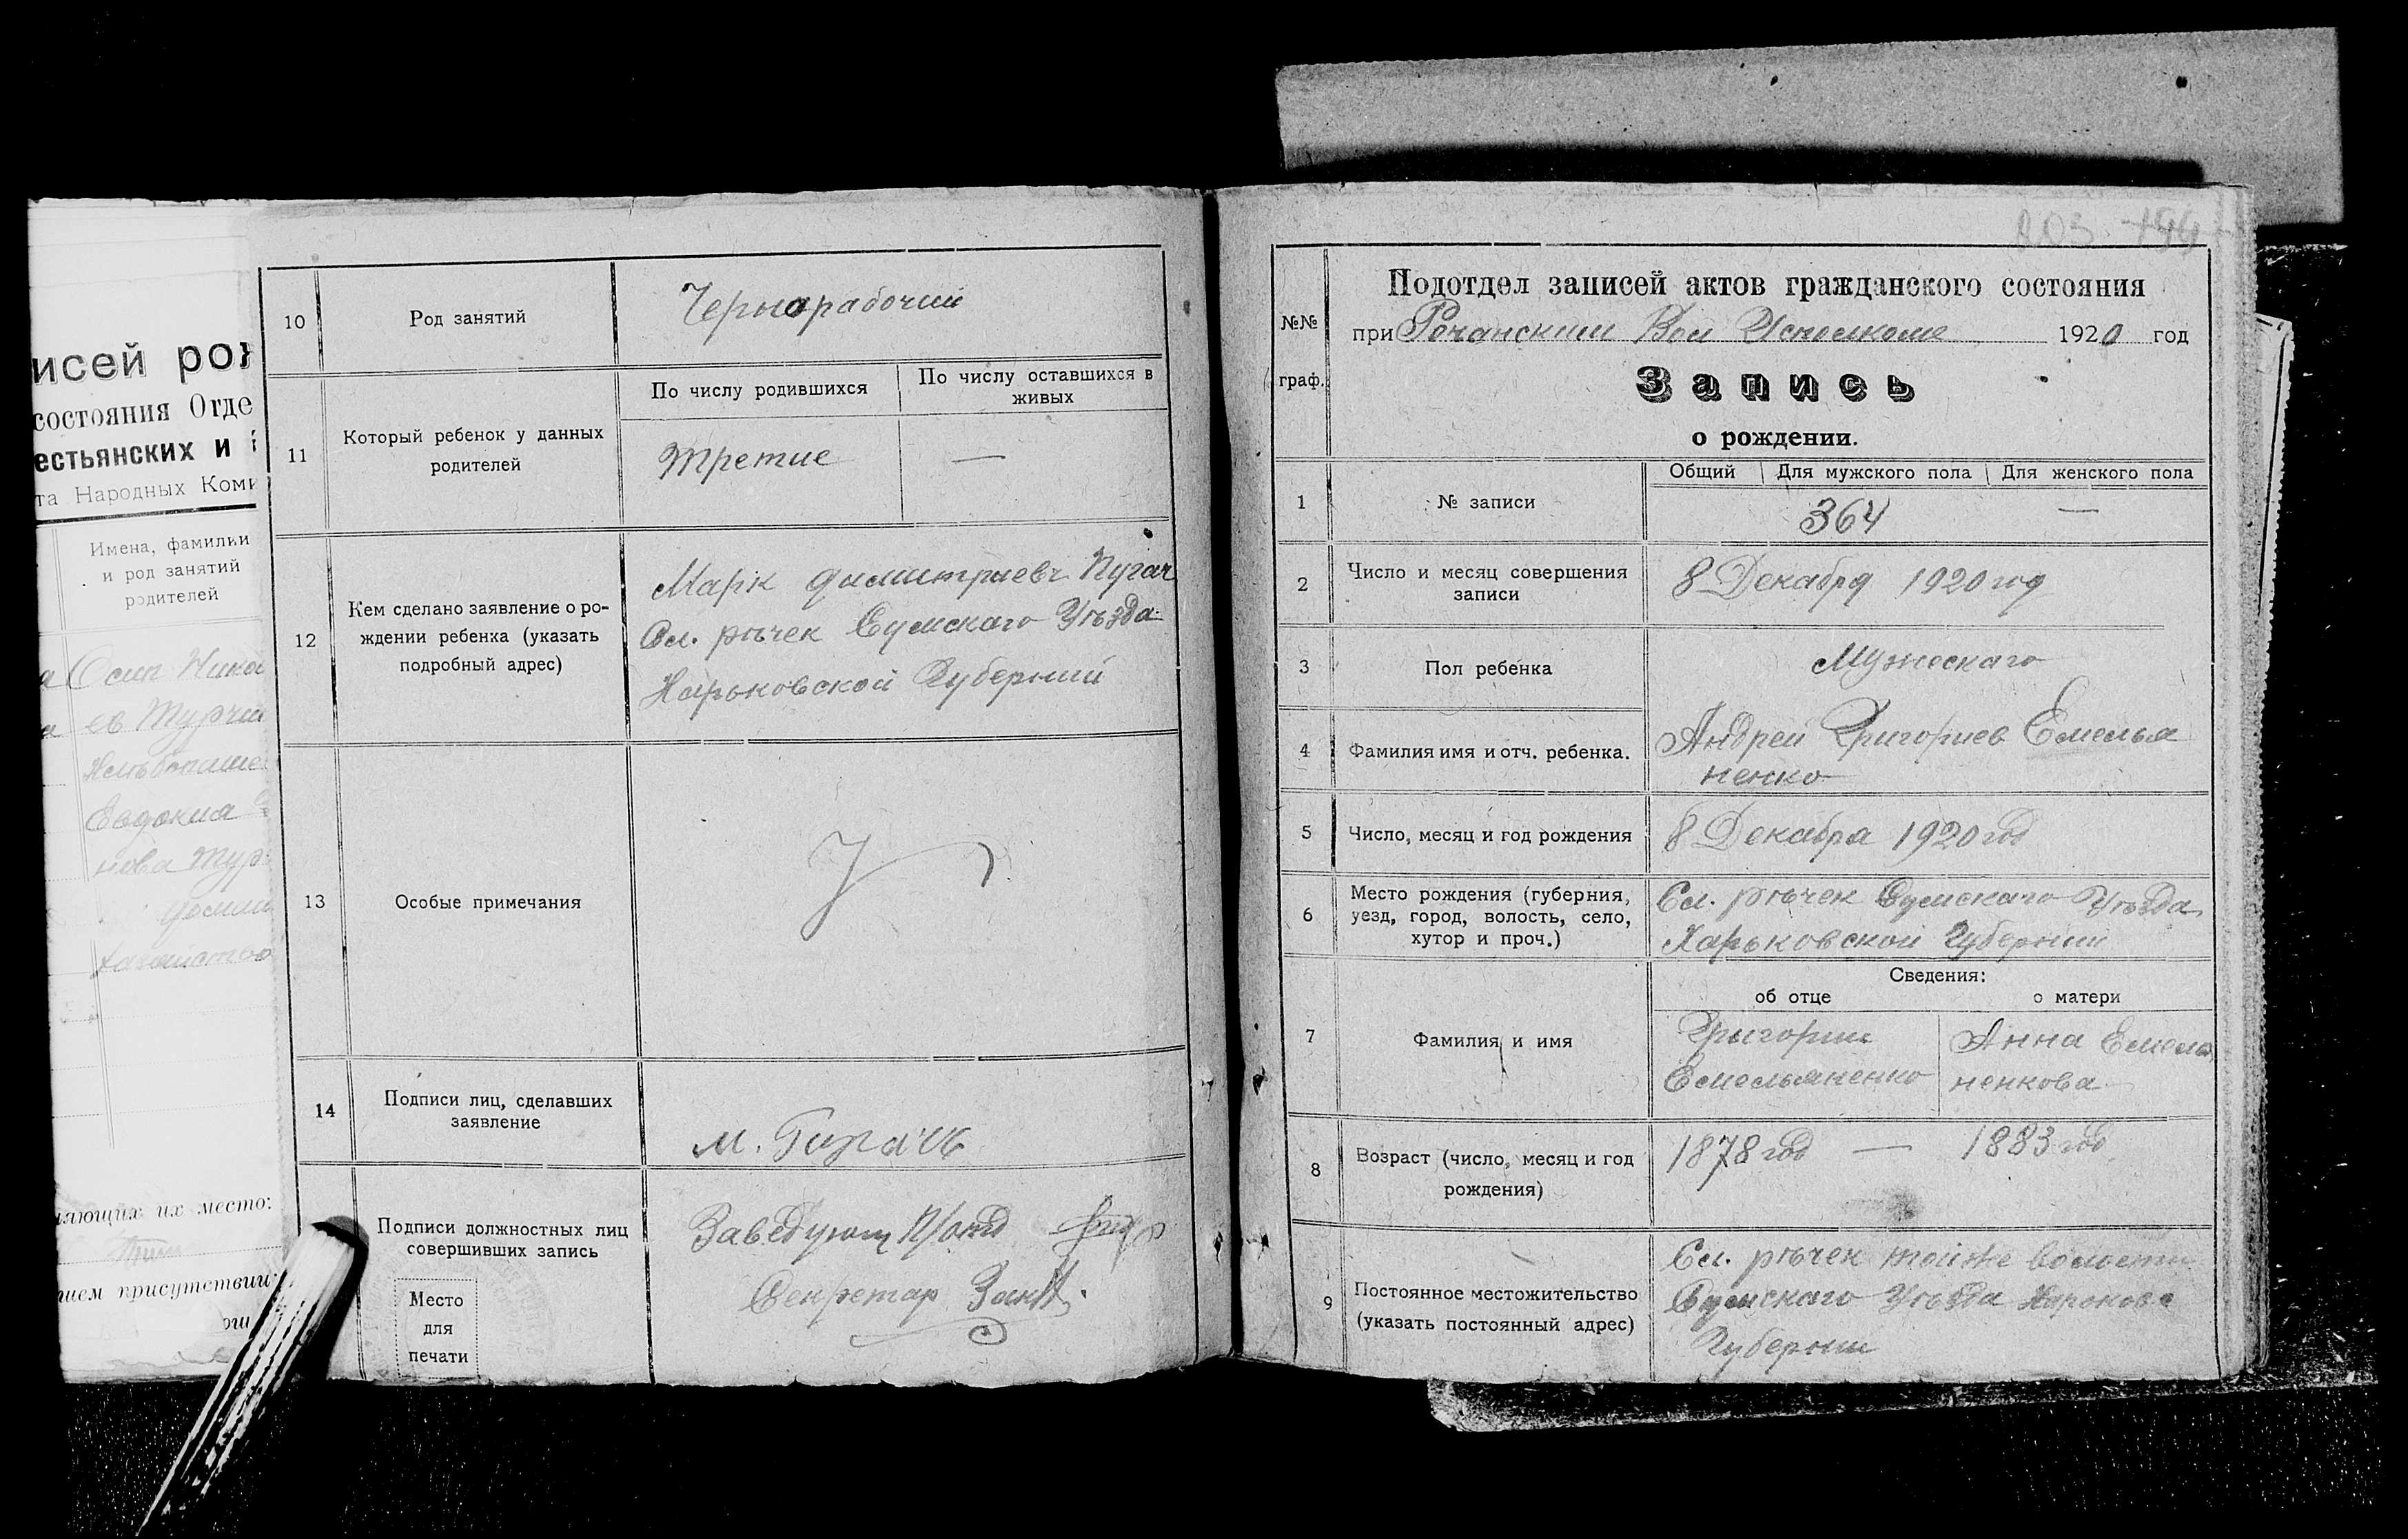 исей рож
состояния Отде
естьянских и
та Народных Коми
Имена, фамилии
и род занятий
родителей
Осип Никол
ев Турчи
Евдокия
нова Тур
няющих их место:
шем присутствии:
10
Род занятий
Чернорабочий
11
Который ребенок у данных
родителей
По числу родившихся
По числу оставшихся в
живых
Третие
—
12
Кем сделано заявление о ро-
ждении ребенка (указать
подробный адрес)
Марк Димитриевч Пугач
Сл. рѣчек Сумскаго Уѣзда
Харьковской Губерний
13
Особые примечания
14
Подписи лиц, сделавших
заявление
М.
Подписи должностных лиц
совершивших запись
Заведующ П/отд
Секретар
Место
для
печати
203 199
№№
граф.
Подотдел записей актов гражданского состояния
при Речанским Вол Исполкоме 1920 год
Запись
о рождении.
1
№ записи
Общий
Для мужского пола
Для женского пола
364
—
2
Число и месяц совершения
записи
8 Декабря 1920 год
3
Пол ребенка
Мужескаго
4
Фамилия имя и отч. ребенка.
Андрей Григориев Емелья
ненко
5
Число, месяц и год рождения
8 Декабра 1920 год
6
Место рождения (губерния,
уезд, город, волость, село,
хутор и проч.)
Сл. рѣчек Сумскаго Уѣзда
Харьковской Губернии
7
Фамилия и имя
Сведения:
об отце
о матери
Григории
Емельяненко
Анна Емелья
ненкова
8
Возраст (число, месяц и год
рождения)
1878 год — 1883 год
9
Постоянное местожительство
(указать постоянный адрес)
Сл. рѣчек тойже волости
Сумскаго Уѣзда Харьковс
Губернии